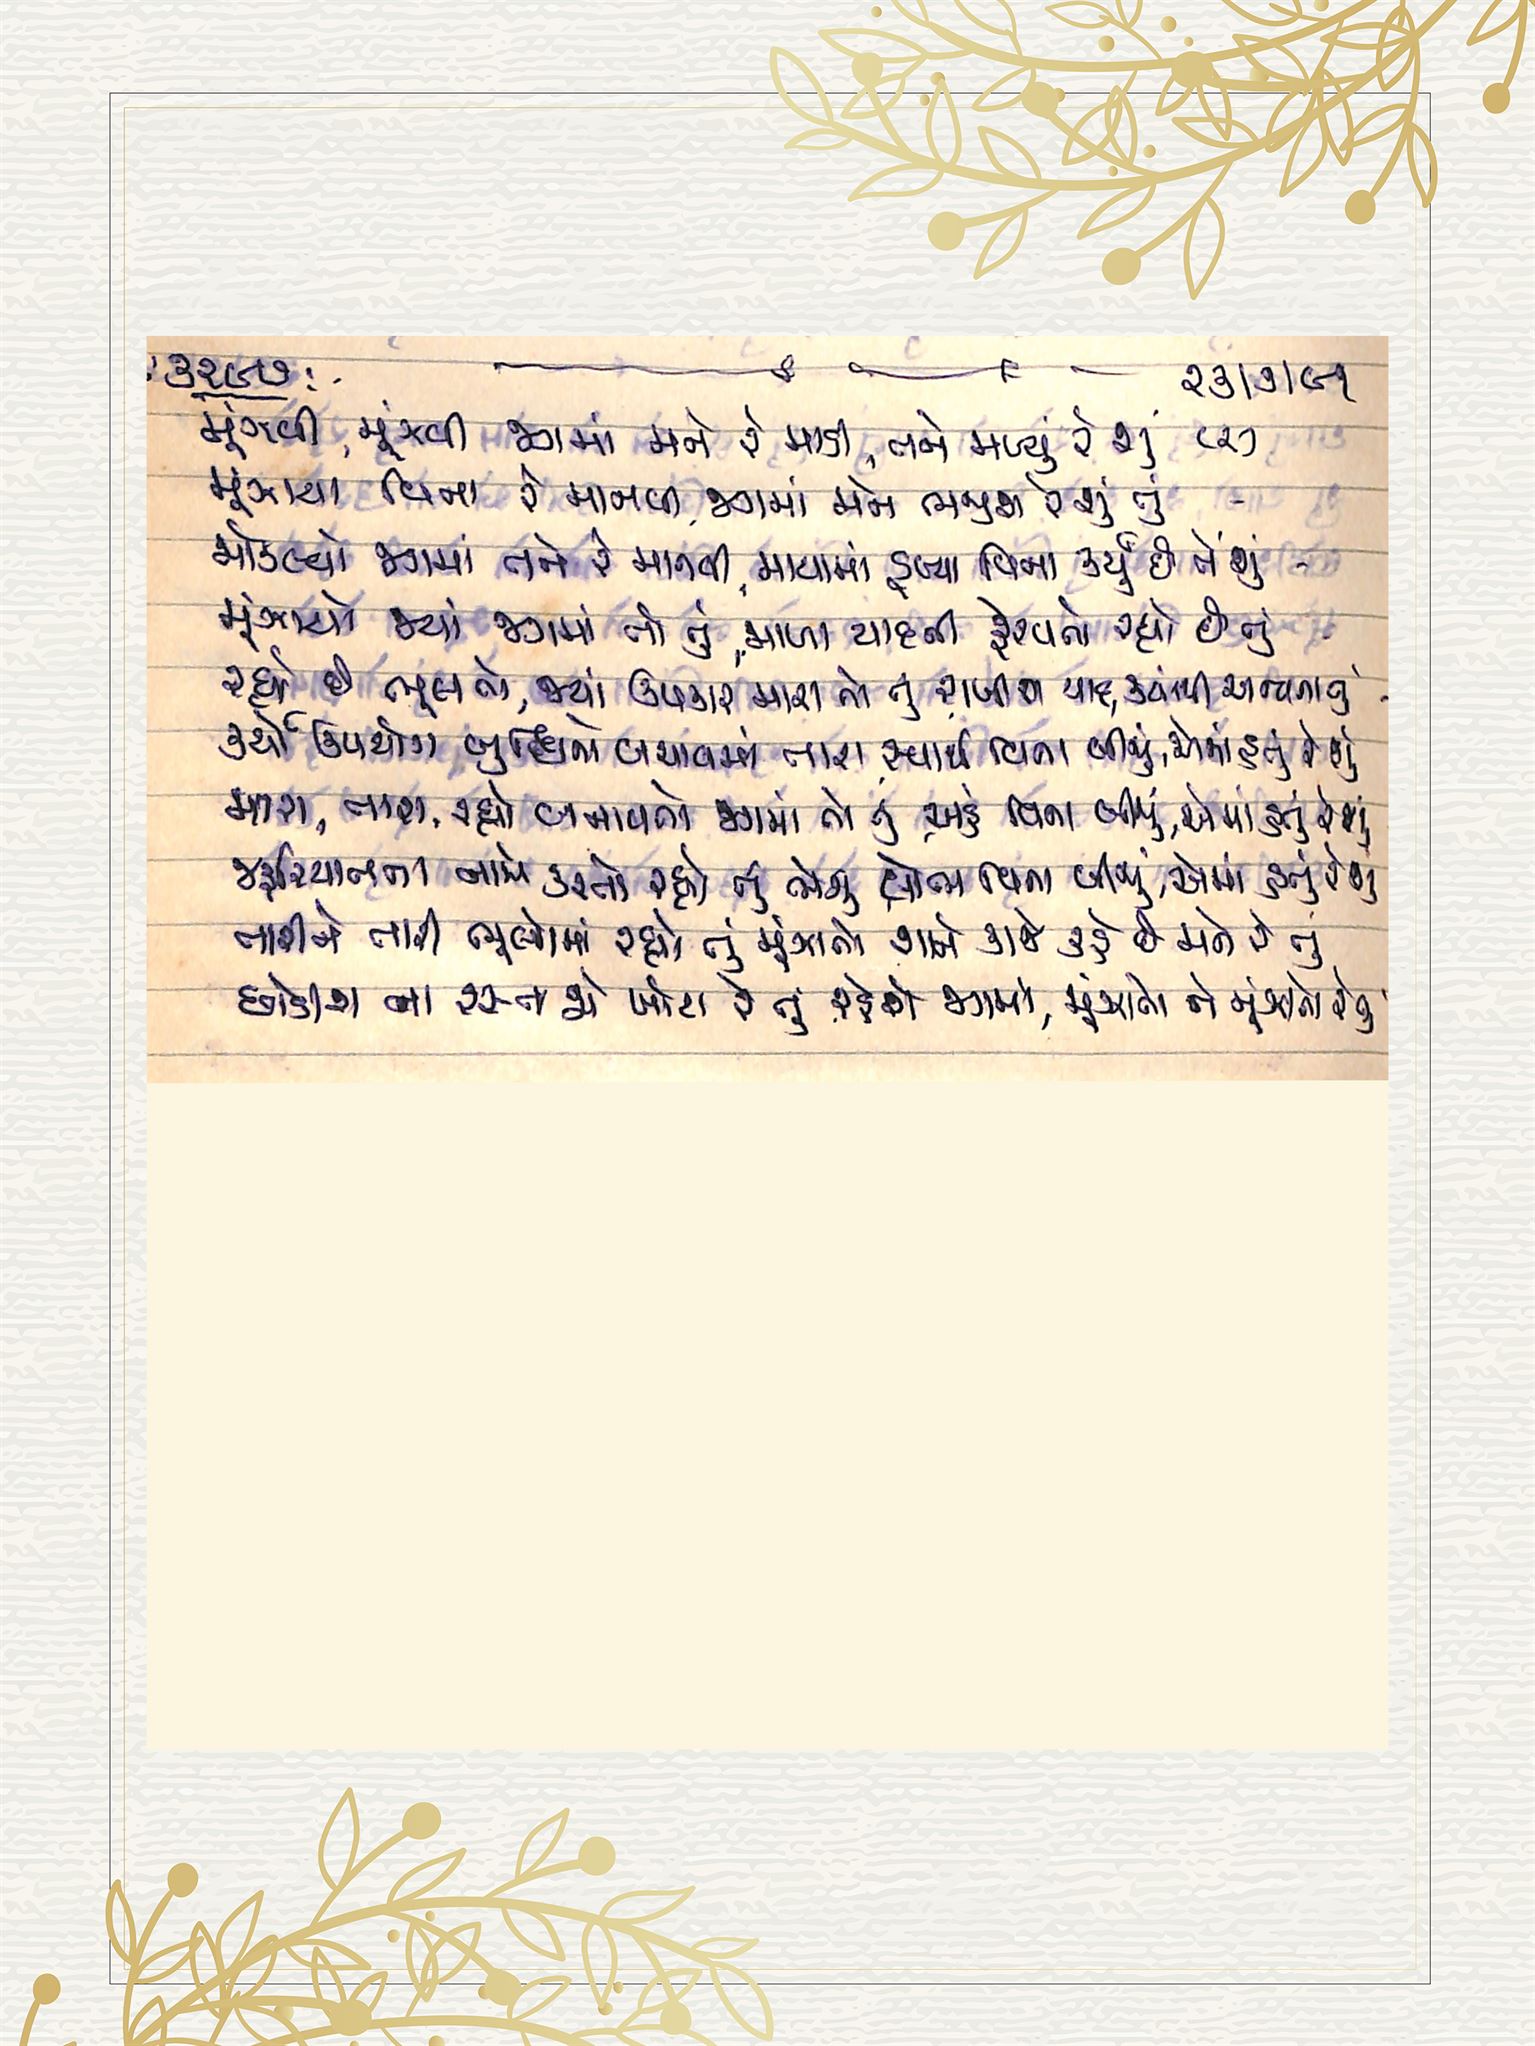 ૩૨૯૭ :.
૨૩/૭/૯૧
મૂંઝવી, મૂંઝવી જગમાં મને રે માડી, તને મળ્યું રે શું (૨)
મૂંઝાયા વિના રે માનવી, જગમાં મને ભજીશ રે શું તું -
મોકલ્યો જગમાં તને રે માનવી, માયામાં ડૂબ્યા વિના કર્યું છે તેં શું -
મૂંઝાયો જ્યાં જગમાં તો તું, માળા યાદની ફેરવતો રહ્યો છે તું
રહ્યો છે ભૂલતો, જ્યાં ઉપકાર મારા તો તું રાખીશ યાદ, ક્યાંથી અન્યના તું
કર્યો ઉપયોગ બુદ્ધિનો બચાવમાં તારા સ્વાર્થ વિના બીજું, એમાં હતું રે શું
મારા, તારા, રહ્યો બનાવતો જગમાં તો તું અહં વિના બીજું, એમાં હતું રે શું
જરૂરિયાતના નામે કરતો રહ્યો તું ભેગું લોભ વિના બીજું, એમાં હતું રે શું
તારીને તારી ભૂલોમાં રહ્યો તું મૂંઝાતો શાને કાજે કહે છે મને રે તું
છોડીશ ના રસ્તા જો ખોટા રે તું રહેશે જગમાં, મૂંઝાતો ને મૂંઝાતો રે તું